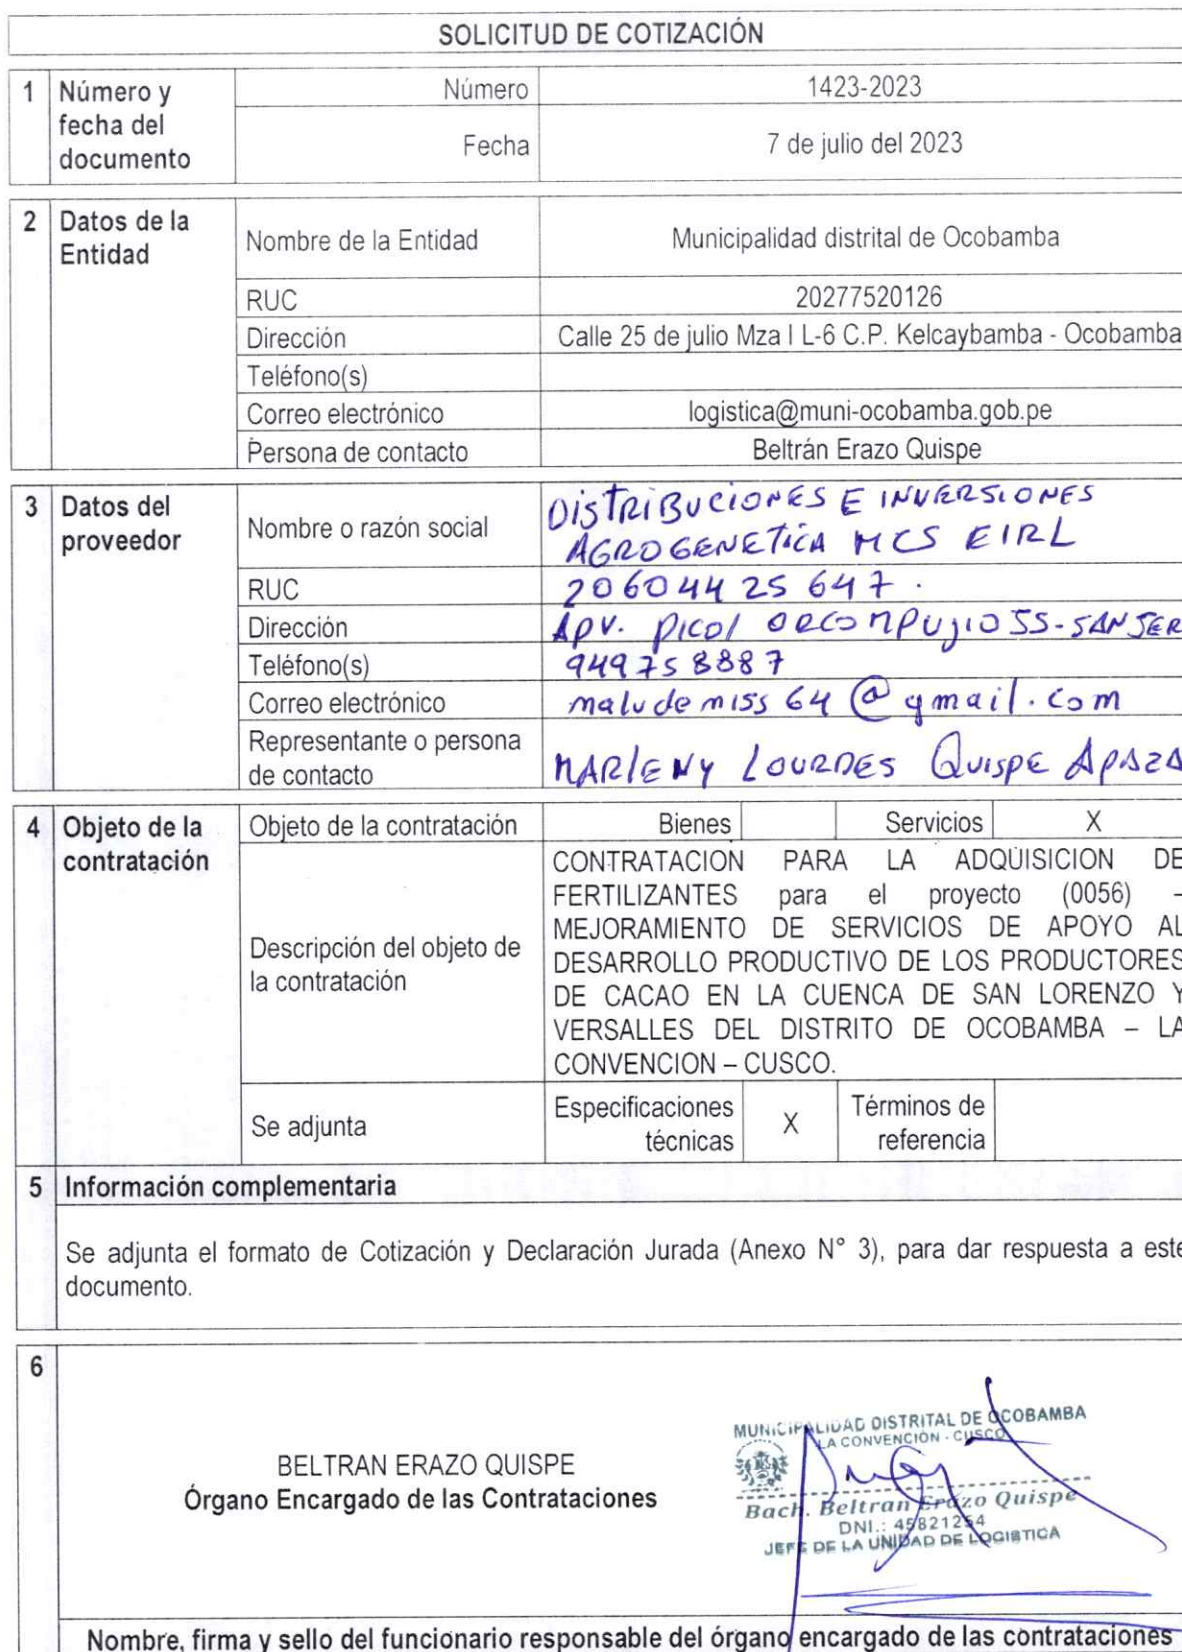 SOLICITUD DE COTIZACIÓN
1 Número y fecha del documento
Número 1423-2023
Fecha 7 de julio del 2023
2 Datos de la Entidad
Nombre de la Entidad Municipalidad distrital de Ocobamba
RUC 20277520126
Dirección Calle 25 de julio Mza I L-6 C.P. Kelcaybamba - Ocobamba
Teléfono(s)
Correo electrónico logistica@muni-ocobamba.gob.pe
Persona de contacto Beltrán Erazo Quispe
3 Datos del proveedor
Nombre o razón social DISTRIBUCIONES E INVERSIONES
AGROGENETICA MCS EIRL
RUC 20604425647.
Dirección APV. PICOL ORCOMPUJIO SS-SAN JER
Teléfono(s) 949758887
Correo electrónico maludemiss64@gmail.com
Representante o persona de contacto MARLENY LOURDES QUISPE APAZA
4 Objeto de la contratación
Objeto de la contratación Bienes Servicios X
Descripción del objeto de la contratación
CONTRATACION PARA LA ADQUISICION DE
FERTILIZANTES para el proyecto (0056) –
MEJORAMIENTO DE SERVICIOS DE APOYO AL
DESARROLLO PRODUCTIVO DE LOS PRODUCTORES
DE CACAO EN LA CUENCA DE SAN LORENZO Y
VERSALLES DEL DISTRITO DE OCOBAMBA – LA
CONVENCION – CUSCO.
Se adjunta Especificaciones técnicas X Términos de referencia
5 Información complementaria
Se adjunta el formato de Cotización y Declaración Jurada (Anexo N° 3), para dar respuesta a este
documento.
6
BELTRAN ERAZO QUISPE
Órgano Encargado de las Contrataciones
MUNICIPALIDAD DISTRITAL DE OCOBAMBA
LA CONVENCIÓN - CUSCO
Bach. Beltran Erazo Quispe
DNI.: 45821254
JEFE DE LA UNIDAD DE LOGISTICA
Nombre, firma y sello del funcionario responsable del órgano encargado de las contrataciones